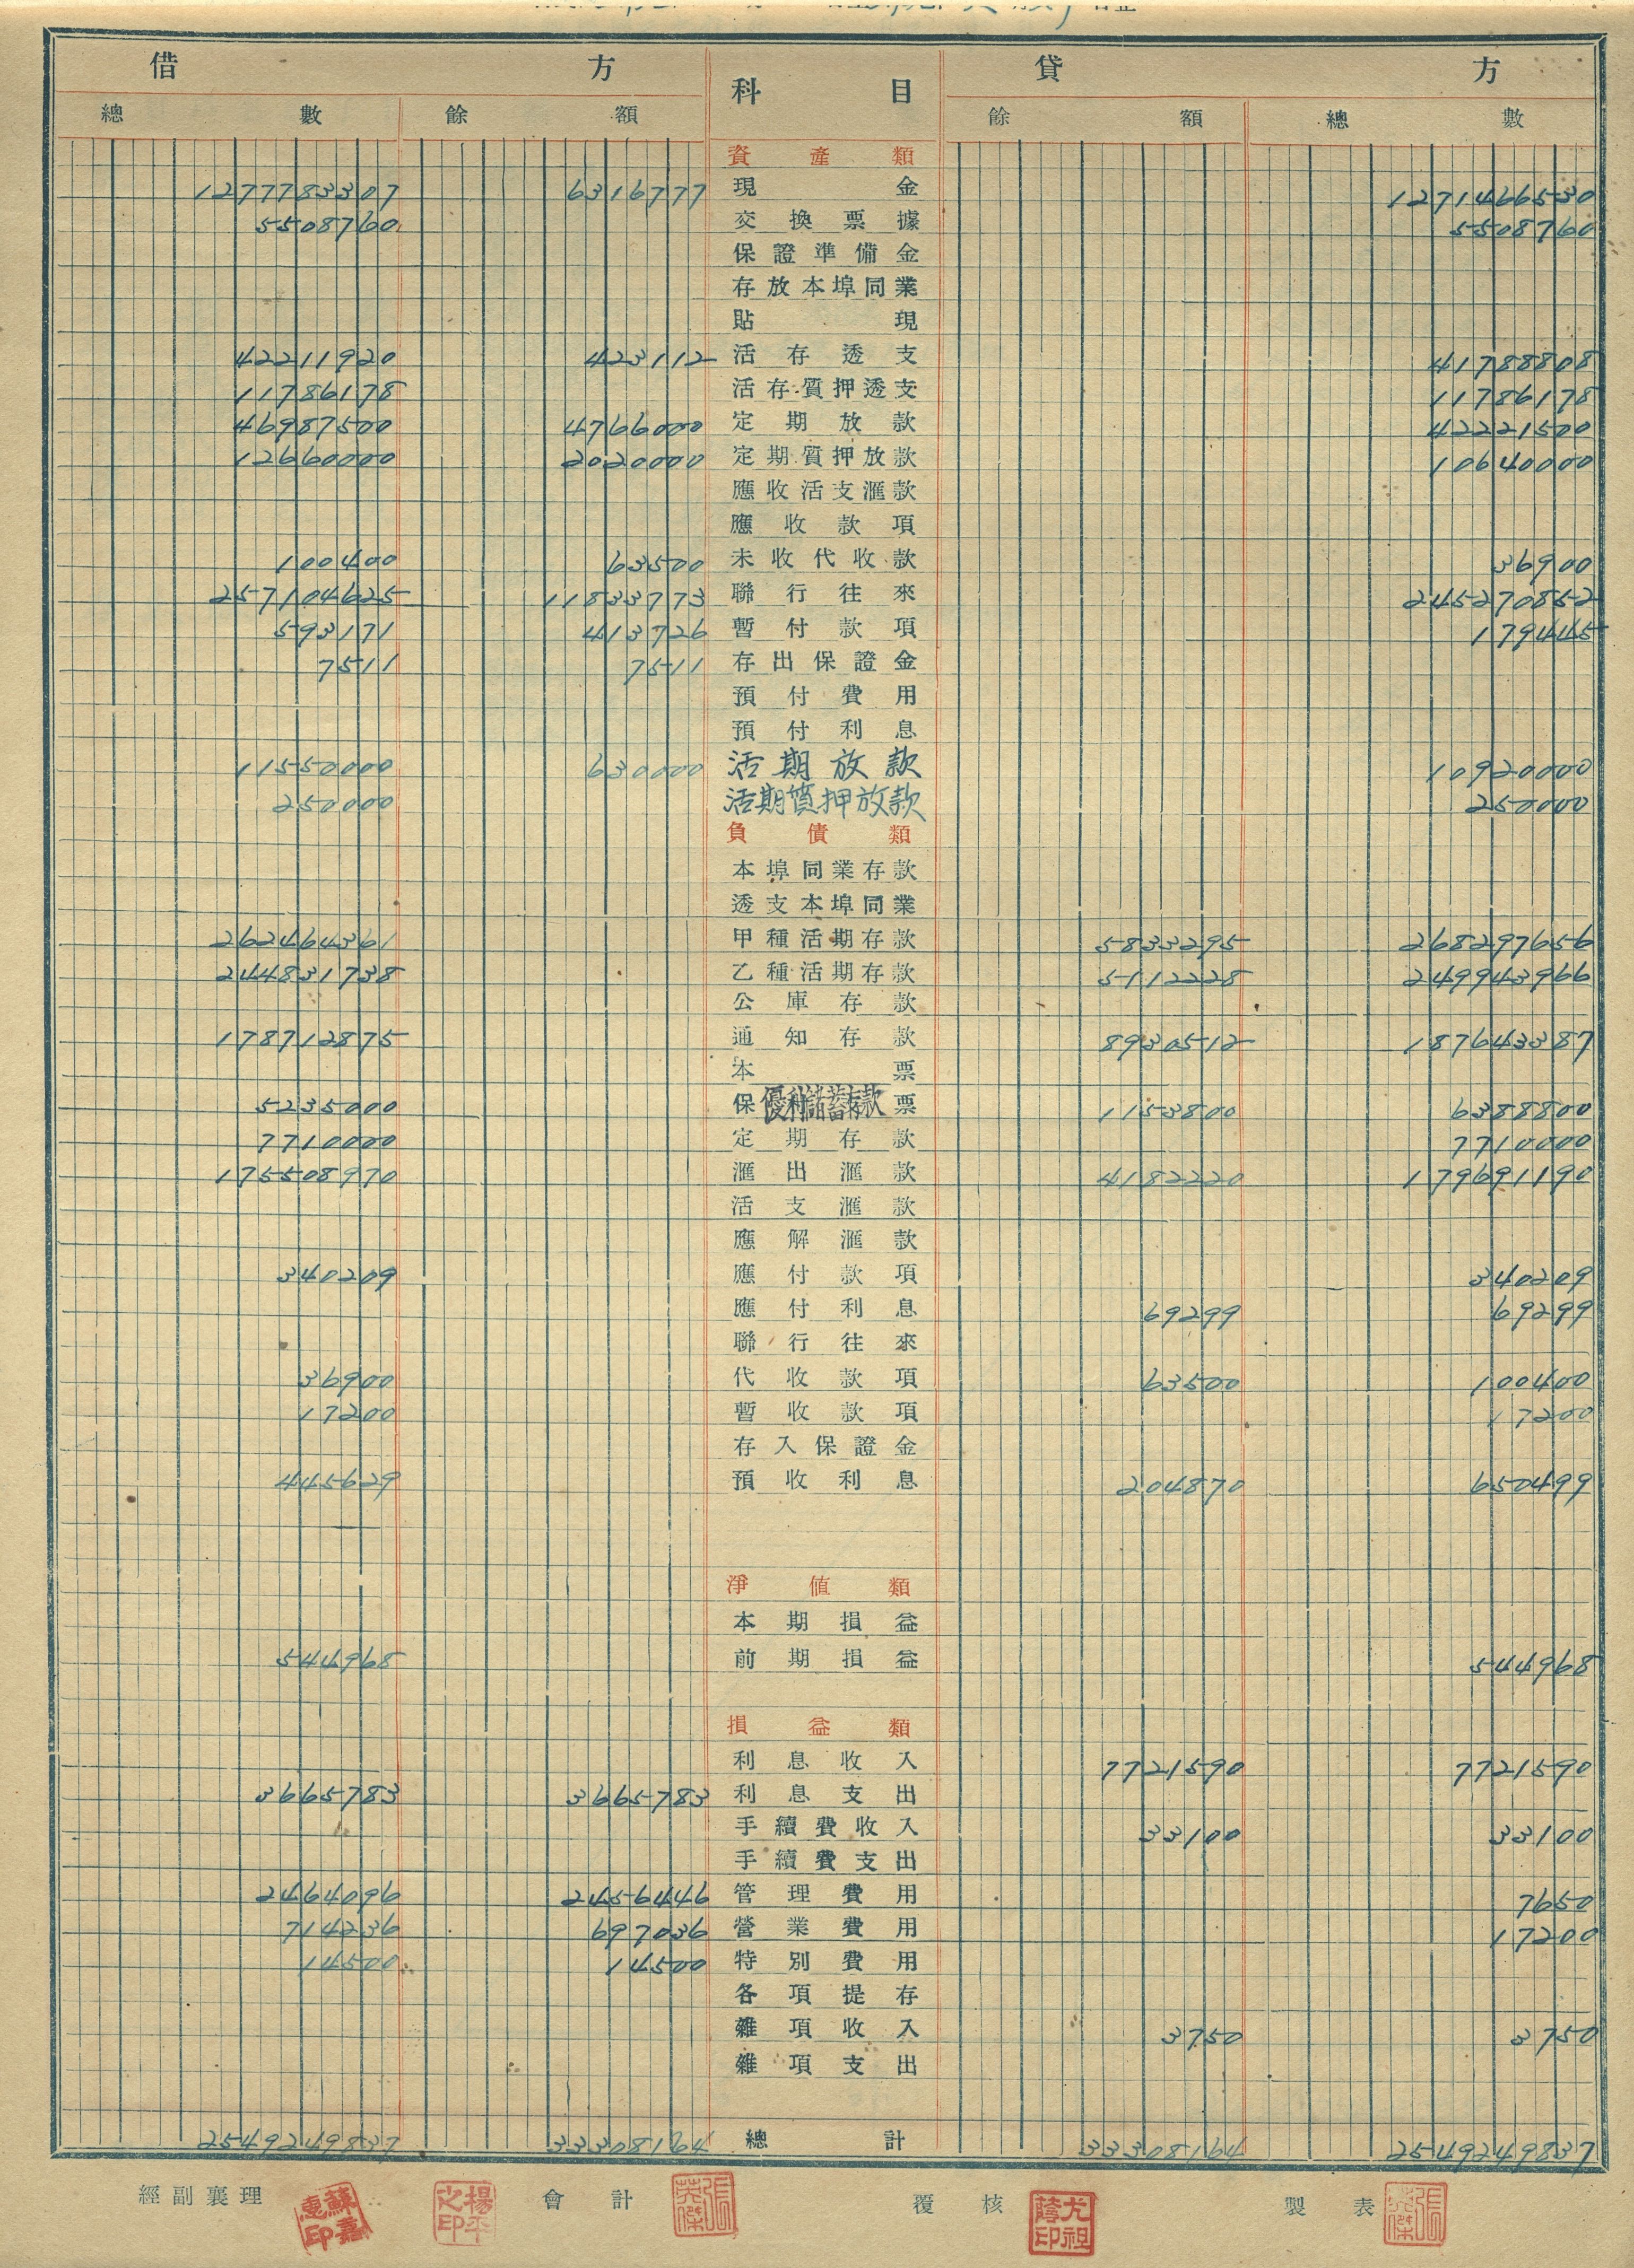 借方 科目 貸方
總數 餘額 餘額 總數
資產類
1277783307 6316777 現金 1271466530
5508760 交換票據 5508760
保證準備金
存放本埠同業
貼現
42211920 423112 活存透支 41788808
11786178 活存質押透支 11786178
46987500 4766000 定期放款 42221500
12660000 2020000 定期質押放款 10640000
應收活支滙款
應收款項
100400 63500 未收代收款 36900
257104625 11833773 聯行往來 245270852
593171 413726 暫付款項 179445
7511 7511 存出保證金
預付費用
預付利息
11550000 630000 活期放款 10920000
250000 活期質押放款 250000
負債類
本埠同業存款
透支本埠同業
262464361 甲種活期存款 5833295 268297656
244831738 乙種活期存款 5112228 249943966
公庫存款
178712875 通知存款 8930512 187643387
本票
5235000 保優利儲蓄存款票 1153800 6388800
7710000 定期存款 7710000
175508970 滙出滙款 4182220 179691190
活支滙款
應解滙款
340209 應付款項 340209
應付利息 69299 69299
聯行往來
36900 代收款項 63500 100400
17200 暫收款項 17200
存入保證金
445629 預收利息 204870 650499
淨值類
本期損益
544968 前期損益 544968
損益類
利息收入 7721590 7721590
3665783 3665783 利息支出
手續費收入 33100 33100
手續費支出
2464096 2456446 管理費用 7650
714236 697036 營業費用 17200
14500 14500 特別費用
各項提存
雜項收入 3750 3750
雜項支出
2549249837 33308164 總計 33308164 2549249837
經副襄理 會計 張英傑 覆核 尤祖蔭印 製表 張英傑